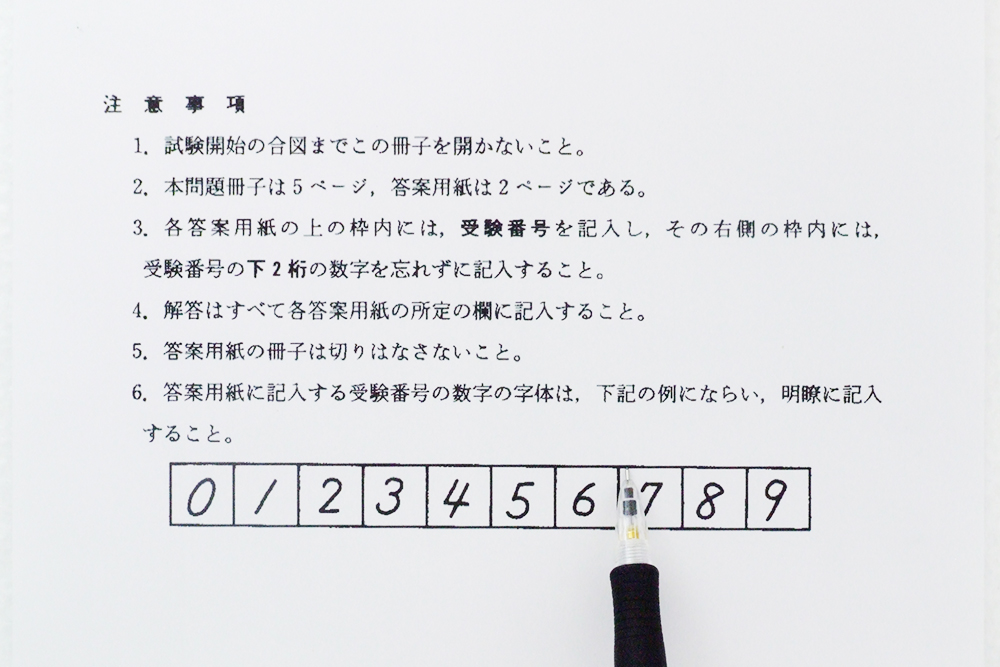 注意事項
1. 試験開始の合図までこの冊子を開かないこと。
2. 本問題冊子は5ページ，答案用紙は2ページである。
3. 各答案用紙の上の枠内には，受験番号を記入し，その右側の枠内には，
受験番号の下2桁の数字を忘れずに記入すること。
4. 解答はすべて各答案用紙の所定の欄に記入すること。
5. 答案用紙の冊子は切りはなさないこと。
6. 答案用紙に記入する受験番号の数字の字体は，下記の例にならい，明瞭に記入
すること。
0 1 2 3 4 5 6 7 8 9